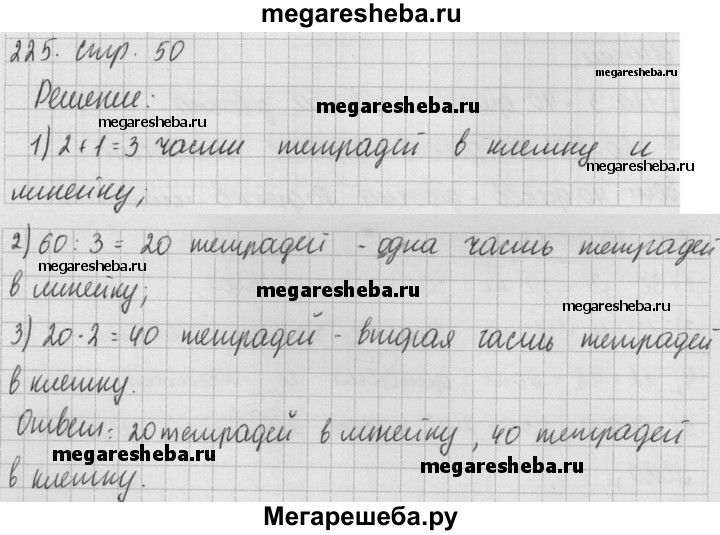 megaresheba.ru
225. стр. 50
megaresheba.ru
Решение:
megaresheba.ru
megaresheba.ru
1) 2+1=3 части тетрадей в клетку и
megaresheba.ru
линейку;
2) 60:3=20 тетрадей - одна часть тетрадей
megaresheba.ru
в линейку;
megaresheba.ru
megaresheba.ru
3) 20·2=40 тетрадей - вторая часть тетрадей
в клетку.
Ответ: 20 тетрадей в линейку, 40 тетрадей
megaresheba.ru
megaresheba.ru
в клетку.
Мегарешеба.ру